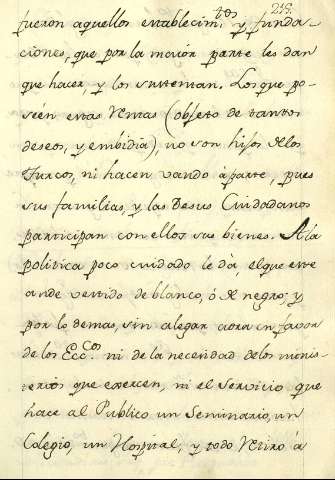 215.
fueron aquellos establecim.tos y funda-
ciones, que por la mayor parte les dan
que hacer, y los sustentan. Los que po-
seén estas Rentas (objeto de tantos
deseos, y embidia), no son hijos de los
Turcos, ni hacen vando à parte, pues
sus familias, y las de sus Ciudadanos
participan con ellos sus bienes. A la
politica poco cuidado le dà el que este
ande vestido de blanco, ó de negro; y
por lo demas, sin alegar aora en favor
de los Ecc.cos ni de la necesidad de los minis-
terios que exercen, ni el Servicio que
hace al Publico un Seminario, un
Colegio, un Hospital, y todo Retiro à